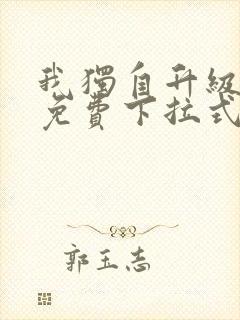 我獨自升級
免費下拉式
郭玉志